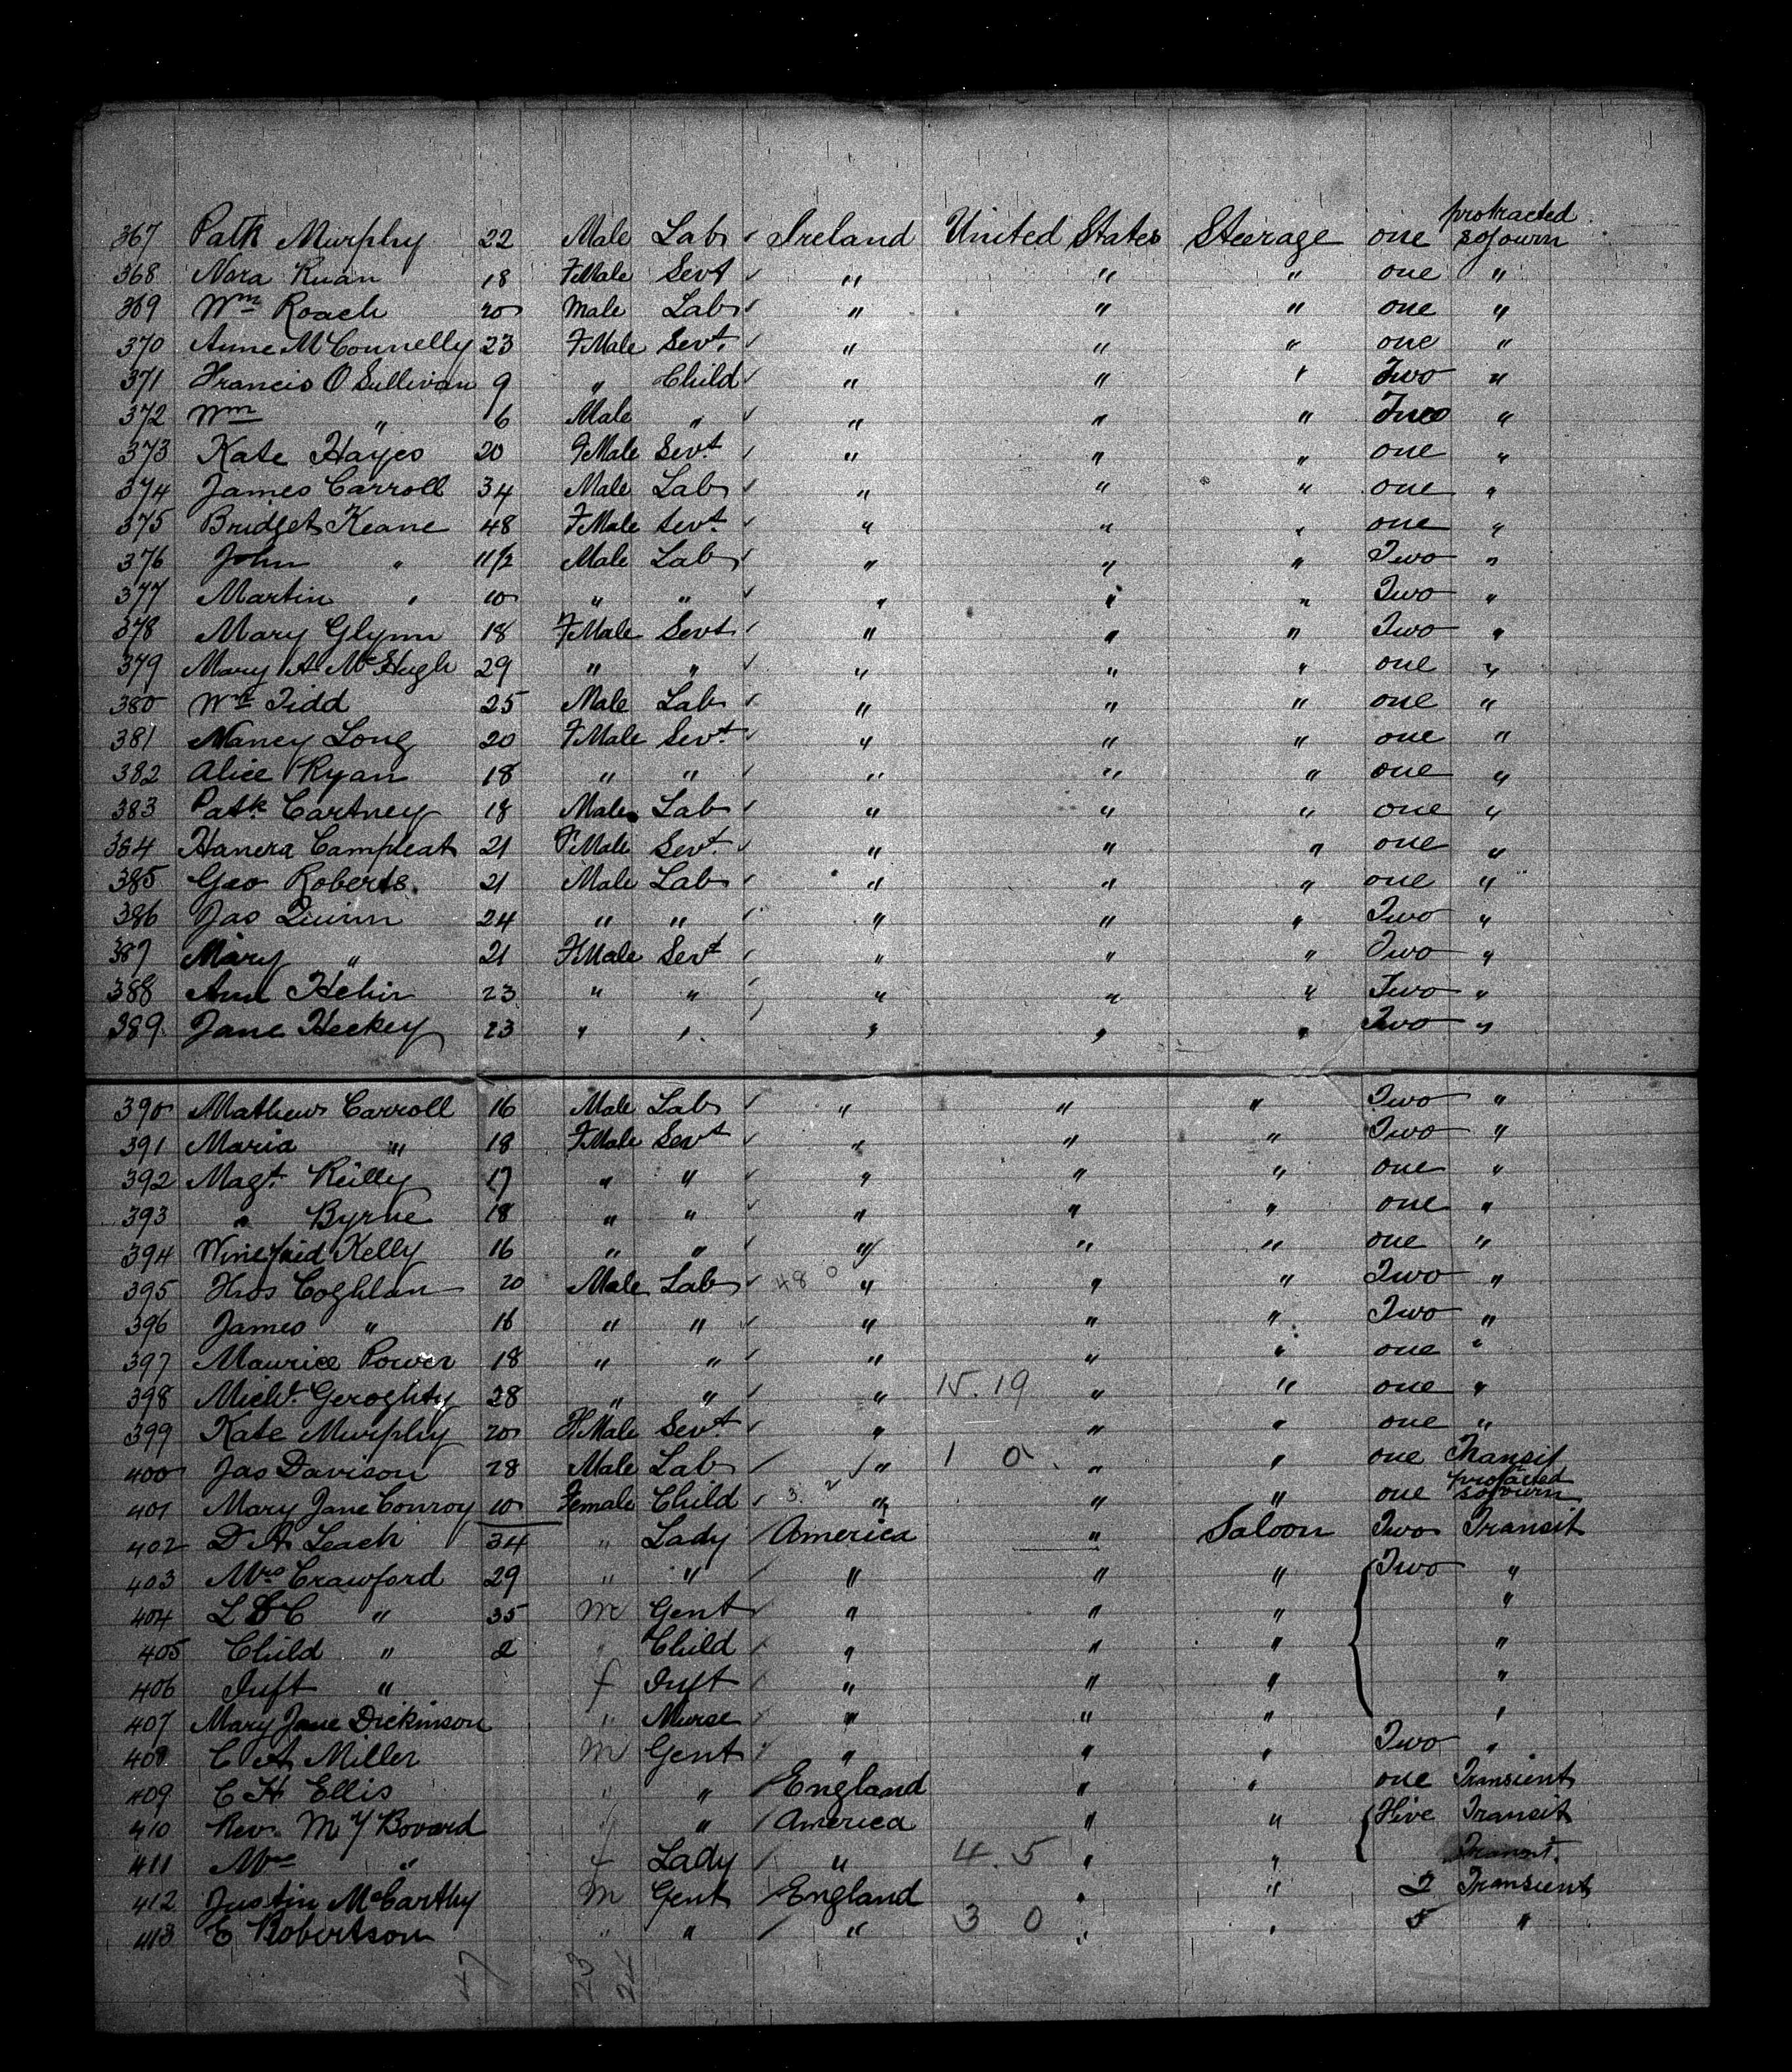 367 Patk Murphy 22 Male Lab ✓ Ireland United States Steerage one protracted sojourn
368 Nora Ruan 18 FMale Servt ✓ " " " one "
369 Wm Roach 20 Male Lab ✓ " " " one "
370 Anne McConnelly 23 FMale Sevt ✓ " " " one "
371 Francis O Sullivan 9 " Child ✓ " " " Two "
372 Wm " 6 Male " ✓ " " " Two "
373 Kate Hayes 20 FMale Sevt ✓ " " " one "
374 James Carroll 34 Male Lab ✓ " " " one "
375 Bridget Keane 48 FMale Sevt ✓ " " " one "
376 John " 11 1/2 Male Lab ✓ " " " Two "
377 Martin " 10 " " ✓ " " " Two "
378 Mary Glynn 18 FMale Sevt ✓ " " " Two "
379 Mary A McHugh 29 " " ✓ " " " one "
380 Wm Tidd 25 Male Lab ✓ " " " one "
381 Nancy Long 20 FMale Sevt ✓ " " " one "
382 Alice Ryan 18 " " ✓ " " " one "
383 Patk Cartney 18 Male Lab ✓ " " " one "
384 Hanera Campleat 21 FMale Sevt ✓ " " " one "
385 Geo Roberts 21 Male Lab ✓ " " " one "
386 Jas Quinn 24 " " ✓ " " " Two "
387 Mary " 21 FMale Sevt ✓ " " " Two "
388 Ann Hehir 23 " " ✓ " " " Two "
389 Jane Heekey 23 " " " " " Two "
390 Mathew Carroll 16 Male Lab ✓ " " " Two "
391 Maria " 18 FMale Sevt ✓ " " " Two "
392 Magt Reilly 17 " " ✓ " " " one "
393 " Byrne 18 " " ✓ " " " one "
394 Winefried Kelly 16 " " ✓ " " " one "
395 Thos Coghlan 20 Male Lab ✓ 48 0 " " " Two "
396 James " 16 " " ✓ " " " Two "
397 Maurice Power 18 " " ✓ " " " one "
398 Michl Geroghty 28 " " ✓ " 15.19 " " one "
399 Kate Murphy 20 FMale Sevt ✓ " " " one "
400 Jas Davison 28 Male Lab ✓ ✓ " 1 0 " " one Transit
401 Mary Jane Conroy 10 Female Child ✓ 3. 2 " " " one protracted sojourn
402 D A Leach 34 " Lady ✓ America " Saloon Two Transit
403 Mrs Crawford 29 " " ✓ " " " Two "
404 L D C " 35 M Gent ✓ " " " "
405 Child " 2 " Child ✓ " " " "
406 Inft " f Inft ✓ " " " "
407 Mary Jane Dickinson " Nurse ✓ " " " "
408 C A Miller M Gent ✓ " " " Two "
409 C H Ellis " " ✓ England " " one Transient
410 Rev. M Y Bovard " " ✓ America " " Five Transit
411 Mrs " f Lady ✓ " 4.5 " " Transit
412 Justin McCarthy M Gent ✓ England " " 2 Transient
413 E Robertson " " ✓ " 3 0 " " 5 "
47 23 24